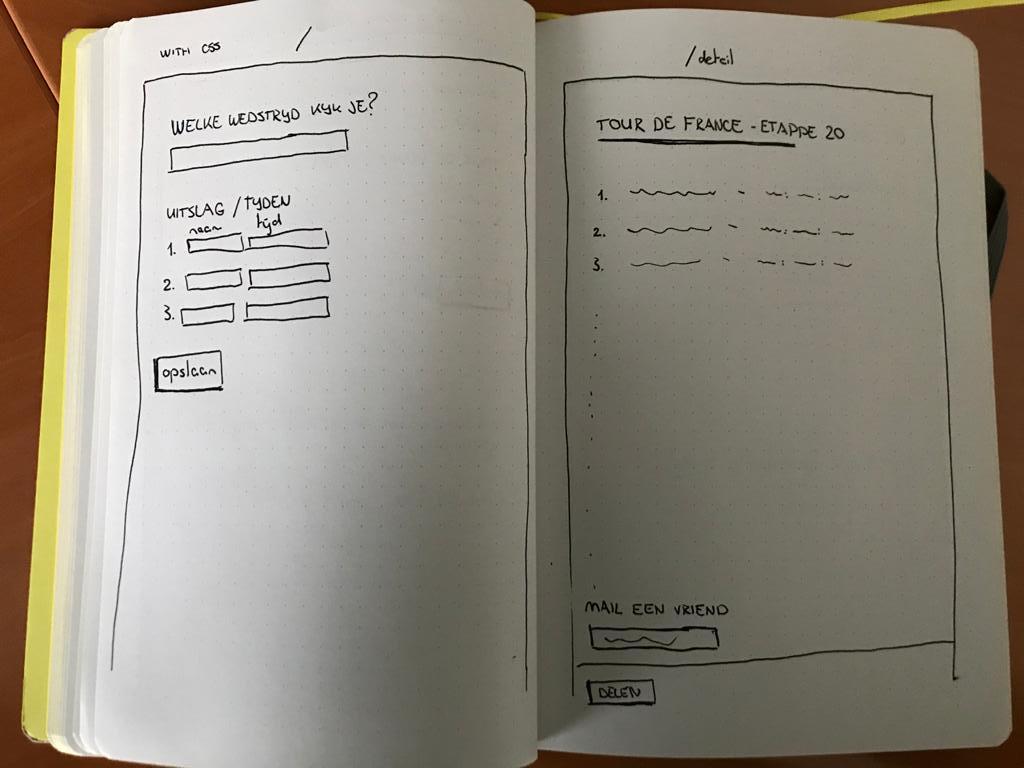 WITH CSS
/
WELKE WEDSTRYD KYK JE?
UITSLAG / TYDEN
naam tijd
1.
2.
3.
opslaan
/detail
TOUR DE FRANCE - ETAPPE 20
1.
2.
3.
MAIL EEN VRIEND
DELEN